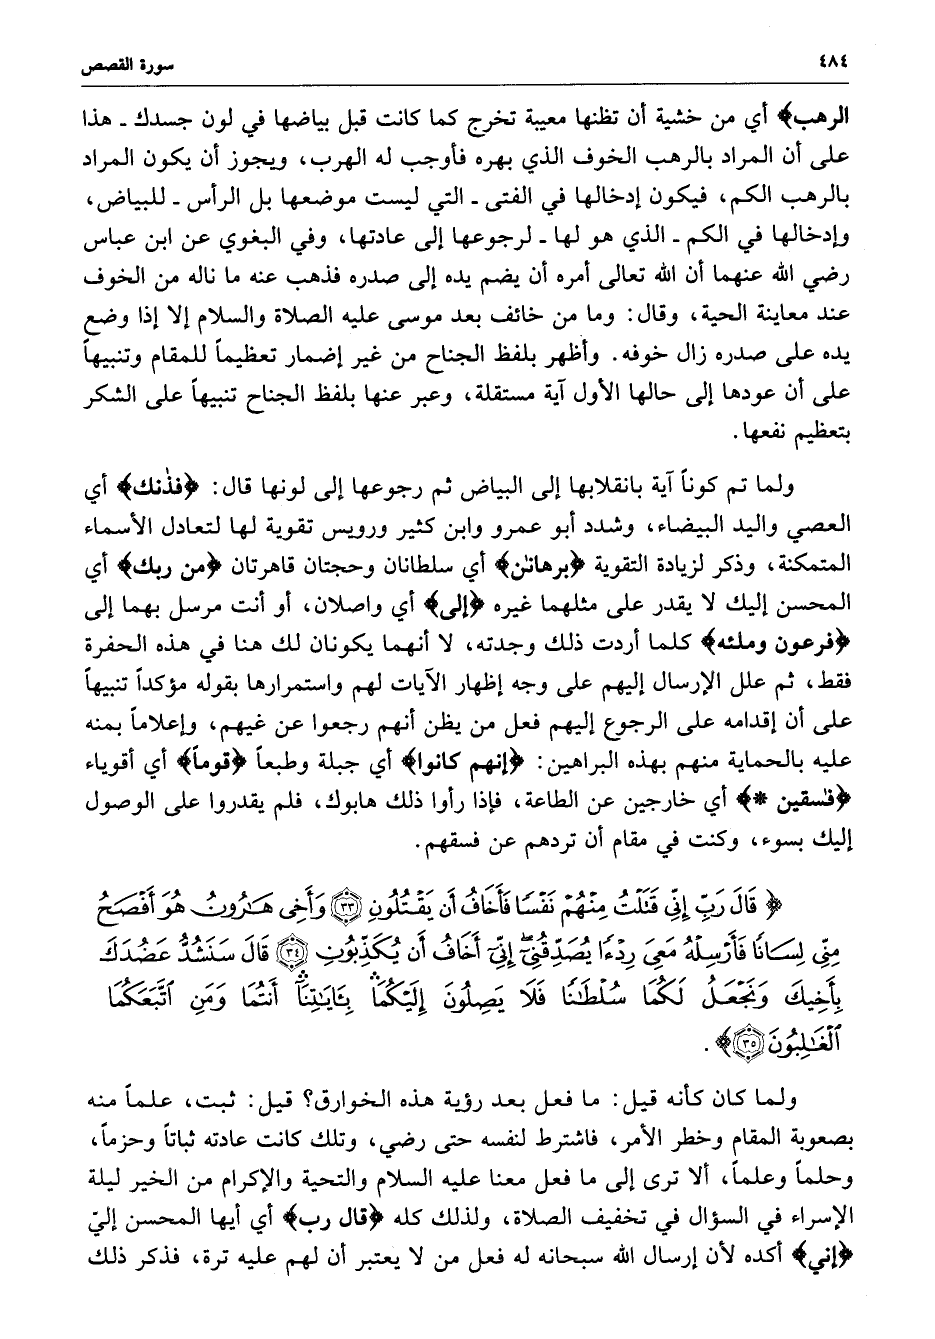 ٤٨٤ سورة القصص
الرهب﴾ أي من خشية أن تظنها معيبة تخرج كما كانت قبل بياضها في لون جسدك ـ هذا
على أن المراد بالرهب الخوف الذي بهره فأوجب له الهرب، ويجوز أن يكون المراد
بالرهب الكم، فيكون إدخالها في الفتى ـ التي ليست موضعها بل الرأس ـ للبياض،
وإدخالها في الكم ـ الذي هو لها ـ لرجوعها إلى عادتها، وفي البغوي عن ابن عباس
رضي الله عنهما أن الله تعالى أمره أن يضم يده إلى صدره فذهب عنه ما ناله من الخوف
عند معاينة الحية، وقال: وما من خائف بعد موسى عليه الصلاة والسلام إلا إذا وضع
يده على صدره زال خوفه. وأظهر بلفظ الجناح من غير إضمار تعظيماً للمقام وتنبيهاً
على أن عودها إلى حالها الأول آية مستقلة، وعبر عنها بلفظ الجناح تنبيهاً على الشكر
بتعظيم نفعها.
ولما تم كوناً آية بانقلابها إلى البياض ثم رجوعها إلى لونها قال: ﴿فذٰنك﴾ أي
العصي واليد البيضاء، وشدد أبو عمرو وابن كثير ورويس تقوية لها لتعادل الأسماء
المتمكنة، وذكر لزيادة التقوية ﴿برهانٰن﴾ أي سلطانان وحجتان قاهرتان ﴿من ربك﴾ أي
المحسن إليك لا يقدر على مثلهما غيره ﴿إلى﴾ أي واصلان، أو أنت مرسل بهما إلى
﴿فرعون وملئه﴾ كلما أردت ذلك وجدته، لا أنهما يكونان لك هنا في هذه الحفرة
فقط، ثم علل الإرسال إليهم على وجه إظهار الآيات لهم واستمرارها بقوله مؤكداً تنبيهاً
على أن إقدامه على الرجوع إليهم فعل من يظن أنهم رجعوا عن غيهم، وإعلاماً بمنه
عليه بالحماية منهم بهذه البراهين: ﴿إنهم كانوا﴾ أي جبلة وطبعاً ﴿قوماً﴾ أي أقوياء
﴿فٰسقين *﴾ أي خارجين عن الطاعة، فإذا رأوا ذلك هابوك، فلم يقدروا على الوصول
إليك بسوء، وكنت في مقام أن تردهم عن فسقهم.
﴿ قَالَ رَبِّ إِنِّي قَتَلْتُ مِنْهُمْ نَفْسًا فَأَخَافُ أَن يَقْتُلُونِ ٣٣ وَأَخِي هَـٰرُونُ هُوَ أَفْصَحُ
مِنِّي لِسَانًا فَأَرْسِلْهُ مَعِيَ رِدْءًا يُصَدِّقُنِيٓ إِنِّيٓ أَخَافُ أَن يُكَذِّبُونِ ٣٤ قَالَ سَنَشُدُّ عَضُدَكَ
بِأَخِيكَ وَنَجْعَلُ لَكُمَا سُلْطَـٰنًا فَلَا يَصِلُونَ إِلَيْكُمَا ۛ بِـَٔايَـٰتِنَآ ۛ أَنتُمَا وَمَنِ ٱتَّبَعَكُمَا
ٱلْغَـٰلِبُونَ ٣٥ ﴾.
ولما كان كأنه قيل: ما فعل بعد رؤية هذه الخوارق؟ قيل: ثبت، علماً منه
بصعوبة المقام وخطر الأمر، فاشترط لنفسه حتى رضي، وتلك كانت عادته ثباتاً وحزماً،
وحلماً وعلماً، ألا ترى إلى ما فعل معنا عليه السلام والتحية والإكرام من الخير ليلة
الإسراء في السؤال في تخفيف الصلاة، ولذلك كله ﴿قال رب﴾ أي أيها المحسن إليّ
﴿إني﴾ أكده لأن إرسال الله سبحانه له فعل من لا يعتبر أن لهم عليه ترة، فذكر ذلك